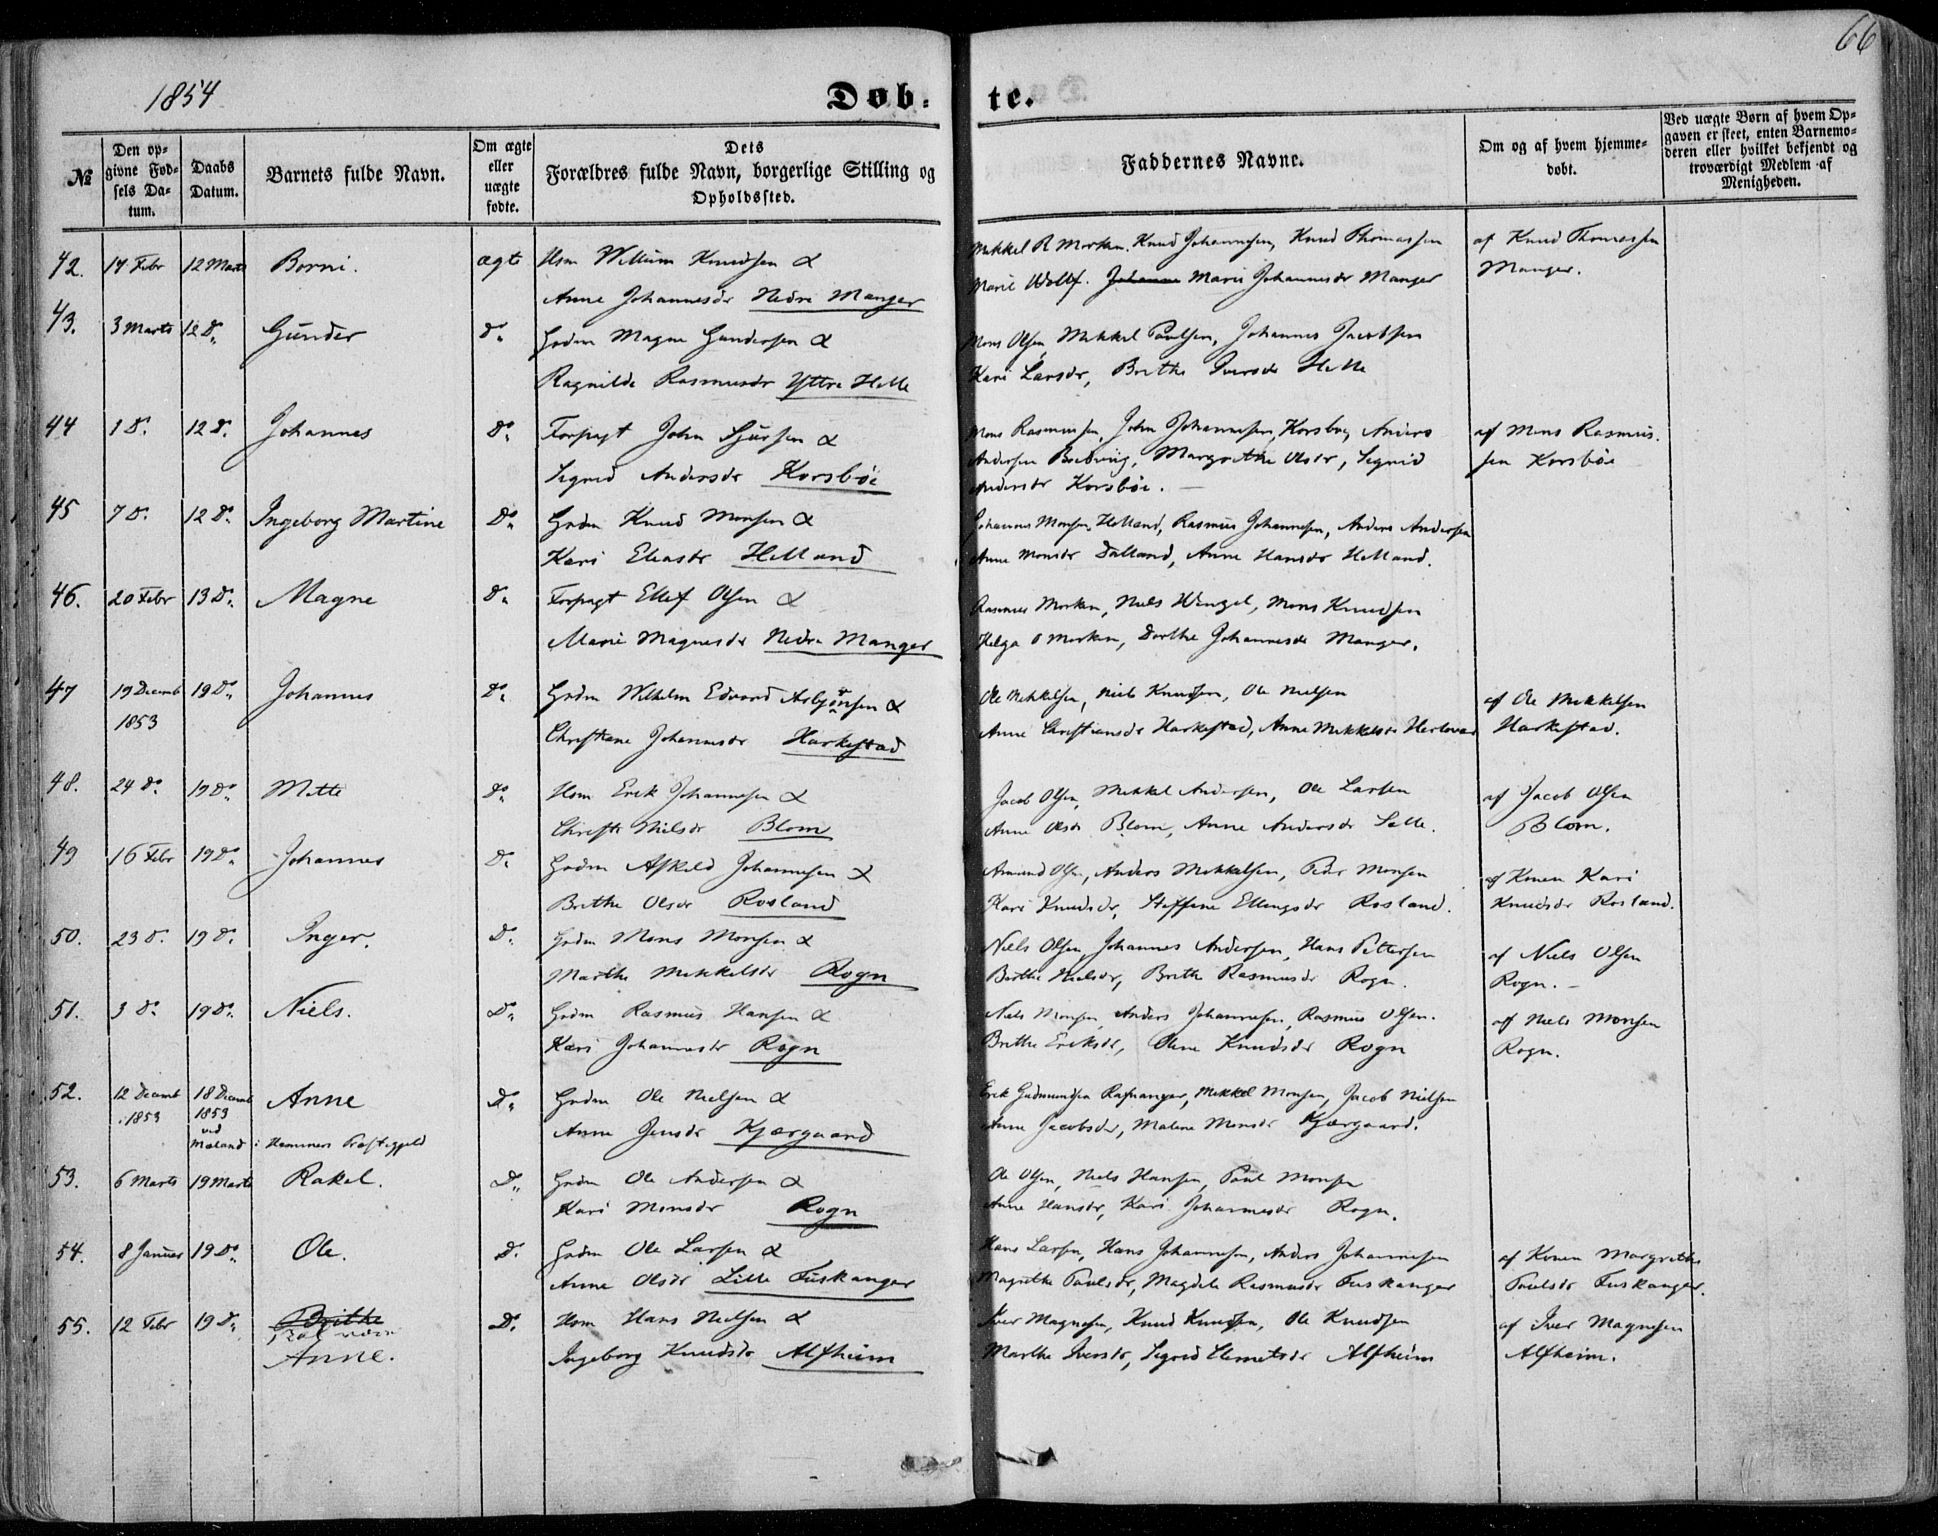 66
1854
Døb-te.
№
Den opgivne Fødsels Datum.
Daabs Datum.
Barnets fulde Navn.
Om ægte eller uægte fødte.
Dets Forældres fulde Navn, borgerlige Stilling og Opholdssted.
Faddernes Navne.
Om og af hvem hjemmedøbt.
Ved uægte Børn af hvem Opgaven er skeet, enten Barnemoderen eller hvilket bekjendt og troværdigt Medlem af Menigheden.
42. 14 Febr 12 Marts Borni. ægte Hsm Willum Knudsen &
Anne Johannesdr Nedre Manger
Mikkel R Morken. Knud Johannesen, Knud Thomassen
Marie Wollf. Johanne Marie Johannesdr Manger
af Knud Thomassen
Manger.
43. 3 Marts 12 D. Gunder D. Grdm Magne Gundersen &
Ragnilde Rasmusdr Yttre Helle
Mons Olsen, Mikkel Paulsen, Johannes Jacobsen
Kari Larsdr, Brithe Iversdr Helle
44 1 D. 12 D. Johannes D. Forpagt John Sjursen &
Sigrid Andersdr Korsbøe
Mons Rasmussen, John Johannesen, Korsbøe, Anders
Andersen Margrethe Olsdr, Sigrid
Andersdr Korsbøe.
af Mons Rasmus-
sen Korsbøe
45 7 D. 12 D. Ingeborg Martine D. Grdm Knud Monsen &
Kari Eliasdr Helland
Johannes Monsen Helland, Rasmus Johannesen, Anders Andersen
Anne Monsdr Dalland, Anne Hansdr Helland.
46. 20 Febr 13 D. Magne D. Forpagt Ellef Olsen &
Marie Magnesdr Nedre Manger
Rasmus Morken, Niels Wengel, Mons Knudsen
Helga O Morken, Dorthe Johannesdr Manger.
47 19 Decemb 19 D. Johannes D. Grdm Wilhelm Edvard Asbjönsen &
1853
Christiane Johannesdr Harkestad
Ole Mikkelsen, Niels Knudsen, Ole Nielsen
Anne Christiansdr Harkestad, Anne Mikkelsdr
af Ole Mikkelsen
Harkestad.
48. 24 D. 19 D. Mette D. Hsm Erik Johannesen &
Christi Nielsdr Blom
Jacob Olsen, Mikkel Andersen, Ole Larsen
Anne Olsdr Blom, Anne Andersdr Sælle.
af Jacob Olsen
Blom.
49 16 Febr 19 D. Johannes D. Grdm Askild Johannesen &
Brithe Olsdr Rosland
Amund Olsen, Anders Mikkelsen, Peder Monsen
Kari Knudsdr, Steffine Ellingsdr Rosland.
af Konen Kari
Knudsdr Rosland.
50. 23 D. 19 D. Inger. D. Grdm Mons Monsen &
Marthe Mikkelsdr Rogn
Niels Olsen, Johannes Andersen, Hans Pettersen
Brithe Nielsdr, Brithe Rasmusdr Rogn.
af Niels Olsen
Rogn.
51. 3 D. 19 D. Niels. D. Grdm Rasmus Hansen &
Kari Johannesdr Rogn
Niels Monsen, Anders Johannesen, Rasmus Olsen.
Brithe Eriksdr, Oline Knudsdr Rogn
af Niels Monsen
Rogn.
52. 12 Decemb 1853 18 Decemb 1853 ved Mæland i Hammers Præstegjeld Anne D. Grdm Ole Nielsen &
Anne Jensdr Kjærgaard
Erik Gudmundsen Rafnanger, Mikkel Monsen, Jacob Nielsen
Anne Jacobsdr, Malene Monsdr Kjærgaard.
53. 6 Marts 19 Marts Rakel. D. Grdm Ole Andersen &
Kari Monsdr Rogn
Ole Olsen, Niels Hansen, Paul Monsen
Anne Hansdr, Kari Johannesdr Rogn.
54. 8 Januar 19 D. Ole. D. Grdm Ole Larsen &
Anne Olsdr Lille Fuskanger
Hans Larsen, Hans Johannesen, Anders Johannesen
Magrithe Paulsdr, Magdele Rasmusdr Fuskanger
af Konen Margrethe
Paulsdr Fuskanger.
55. 12 Febr 19 D. Brithe D. Hsm Hans Nielsen &
skal være
Anne.
Ingeborg Knudsdr Alfheim
Iver Magnesen, Knud Knudsen, Ole Knudsen
Marthe Iversdr, Sigrid Clemetsdr Alfheim
af Iver Magnesen
Alfheim.